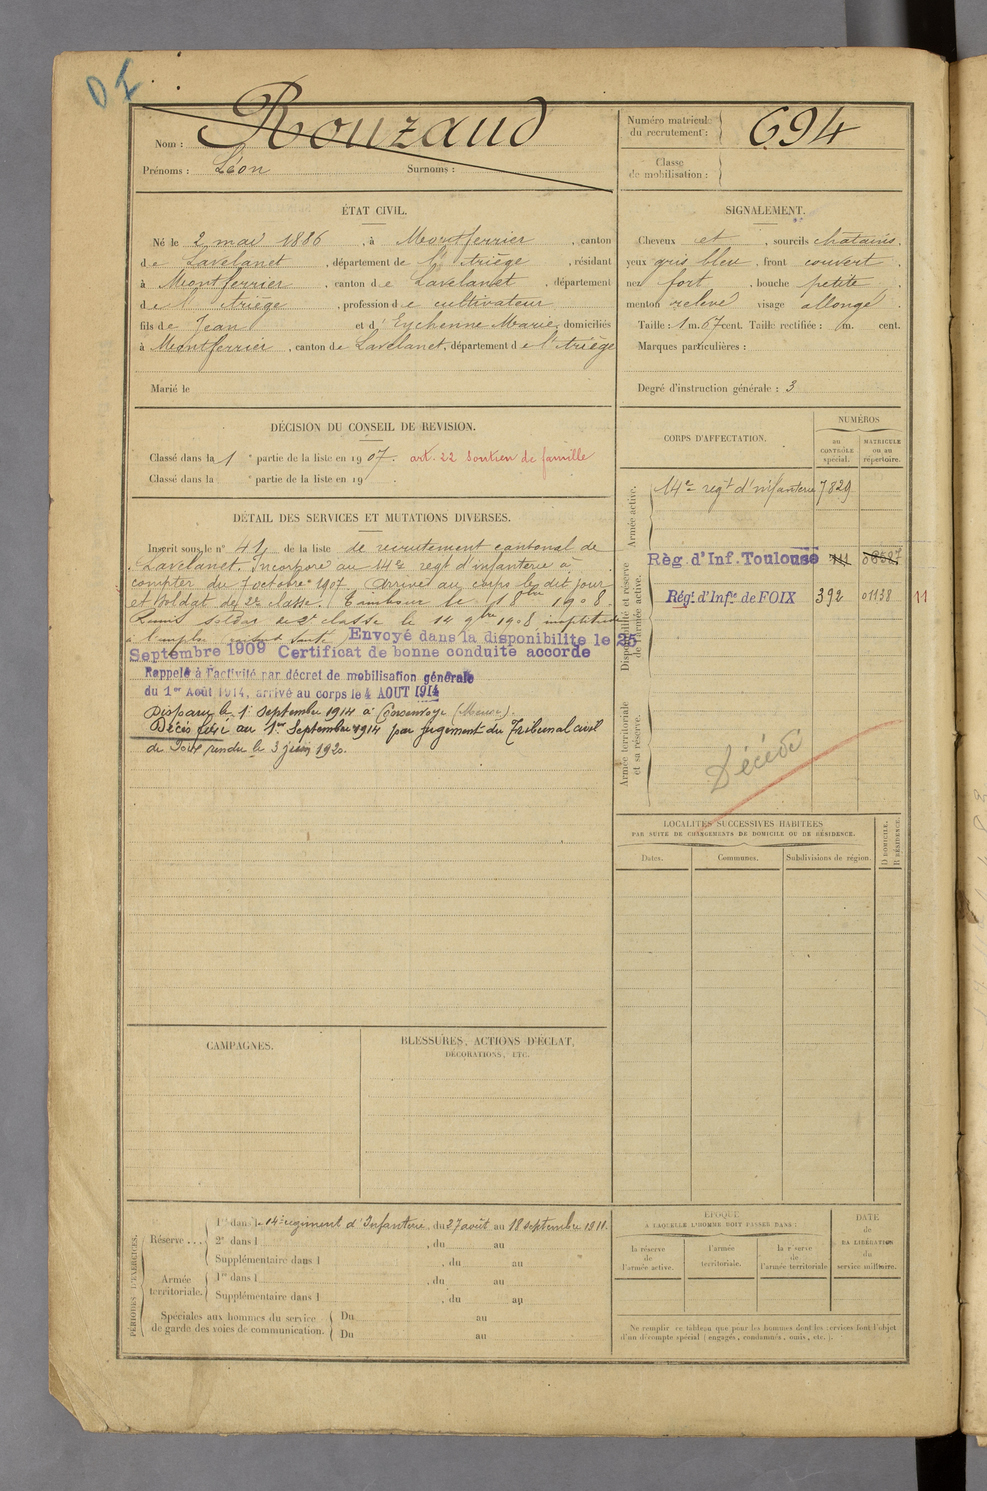 Nom : Rouzaud
Prénoms : Léon Surnoms :
Numéro matricule
du recrutement : 694
Classe
de mobilisation :
ÉTAT CIVIL.
Né le 2 mai 1886, à Montferrier, canton
de Lavelanet, département de l'Ariège, résidant
à Montferrier, canton de Lavelanet, département
de l'Ariège, profession de cultivateur
fils de Jean et d'Eychenne Marie, domiciliés
à Montferrier, canton de Lavelanet, département de l'Ariège
Marié le
SIGNALEMENT.
Cheveux et, sourcils chatains.
yeux gris bleu, front couvert,
nez fort, bouche petite,
menton relevé visage allongé
Taille : 1 m. 67 cent. Taille rectifiée : m. cent.
Marques particulières :
Degré d'instruction générale : 3
DÉCISION DU CONSEIL DE REVISION.
Classé dans la 1e partie de la liste en 1907. art. 22 Soutien de famille
Classé dans la e partie de la liste en 19
DÉTAIL DES SERVICES ET MUTATIONS DIVERSES.
Inscrit sous le n° 41 de la liste de recrutement cantonal de
Lavelanet. Incorporé au 14e regt d'infanterie à
compter du 7 octobre 1907. Arrivé au corps le dit jour
et Soldat de 2e classe. Tambour le 18 1908
Remis soldat de 2e classe le 14 9bre 1908 inaptitude
à l'emploi Envoyé dans la disponibilite le 25
Septembre 1909 Certificat de bonne conduite accorde
Rappelé à l'activité par décret de mobilisation générale
du 1er Août 1914, arrivé au corps le 4 AOUT 1914
Disparu le 1 septembre 1914 à Consenvoye (Meuse).
Décès fixé au 1er Septembre 1914 par jugement du Tribunal civil
de Foix rendu le 3 juin 1920.
CORPS D'AFFECTATION.
NUMÉROS
au
CONTRÔLE
spécial.
MATRICULE
ou au
répertoire.
Armée active.
14e regt d'infanterie 7829
Disponibilité et réserve
de l'armée active.
Règ. d'Inf. Toulouse
Régt. d'Infie de FOIX 392 01138
11
Armée territoriale
et sa réserve.
Décédé
LOCALITÉS SUCCESSIVES HABITÉES
PAR SUITE DE CHANGEMENTS DE DOMICILE OU DE RÉSIDENCE.
Dates. Communes. Subdivisions de région. D DOMICILE. R RÉSIDENCE.
CAMPAGNES.
BLESSURES, ACTIONS D'ÉCLAT,
DÉCORATIONS, ETC.
PÉRIODES D'EXERCICES.
Réserve...
1re dans le 14e régiment d'Infanterie, du 27 août au 18 septembre 1911.
2e dans l , du au
Supplémentaire dans l , du au
Armée
territoriale.
1re dans l , du au
Supplémentaire dans l , du au
Spéciales aux hommes du service
de garde des voies de communication.
Du au
Du au
ÉPOQUE
A LAQUELLE L'HOMME DOIT PASSER DANS :
la réserve
de
l'armée active.
l'armée
territoriale.
la réserve
de
l'armée territoriale
DATE
de
LA LIBÉRATION
du
service militaire.
Ne remplir ce tableau que pour les hommes dont les services font l'objet
d'un décompte spécial (engagés, condamnés, omis, etc.).